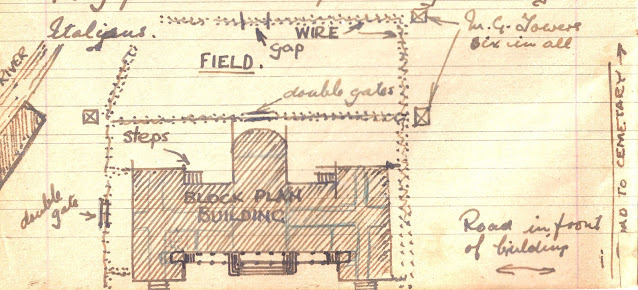 Italians.
WIRE
gap
M.G. Towers
six in all
RIVER
FIELD.
double gates
steps
BLOCK PLAN
BUILDING
double
gate
Road in front
of building
TO CEMETARY